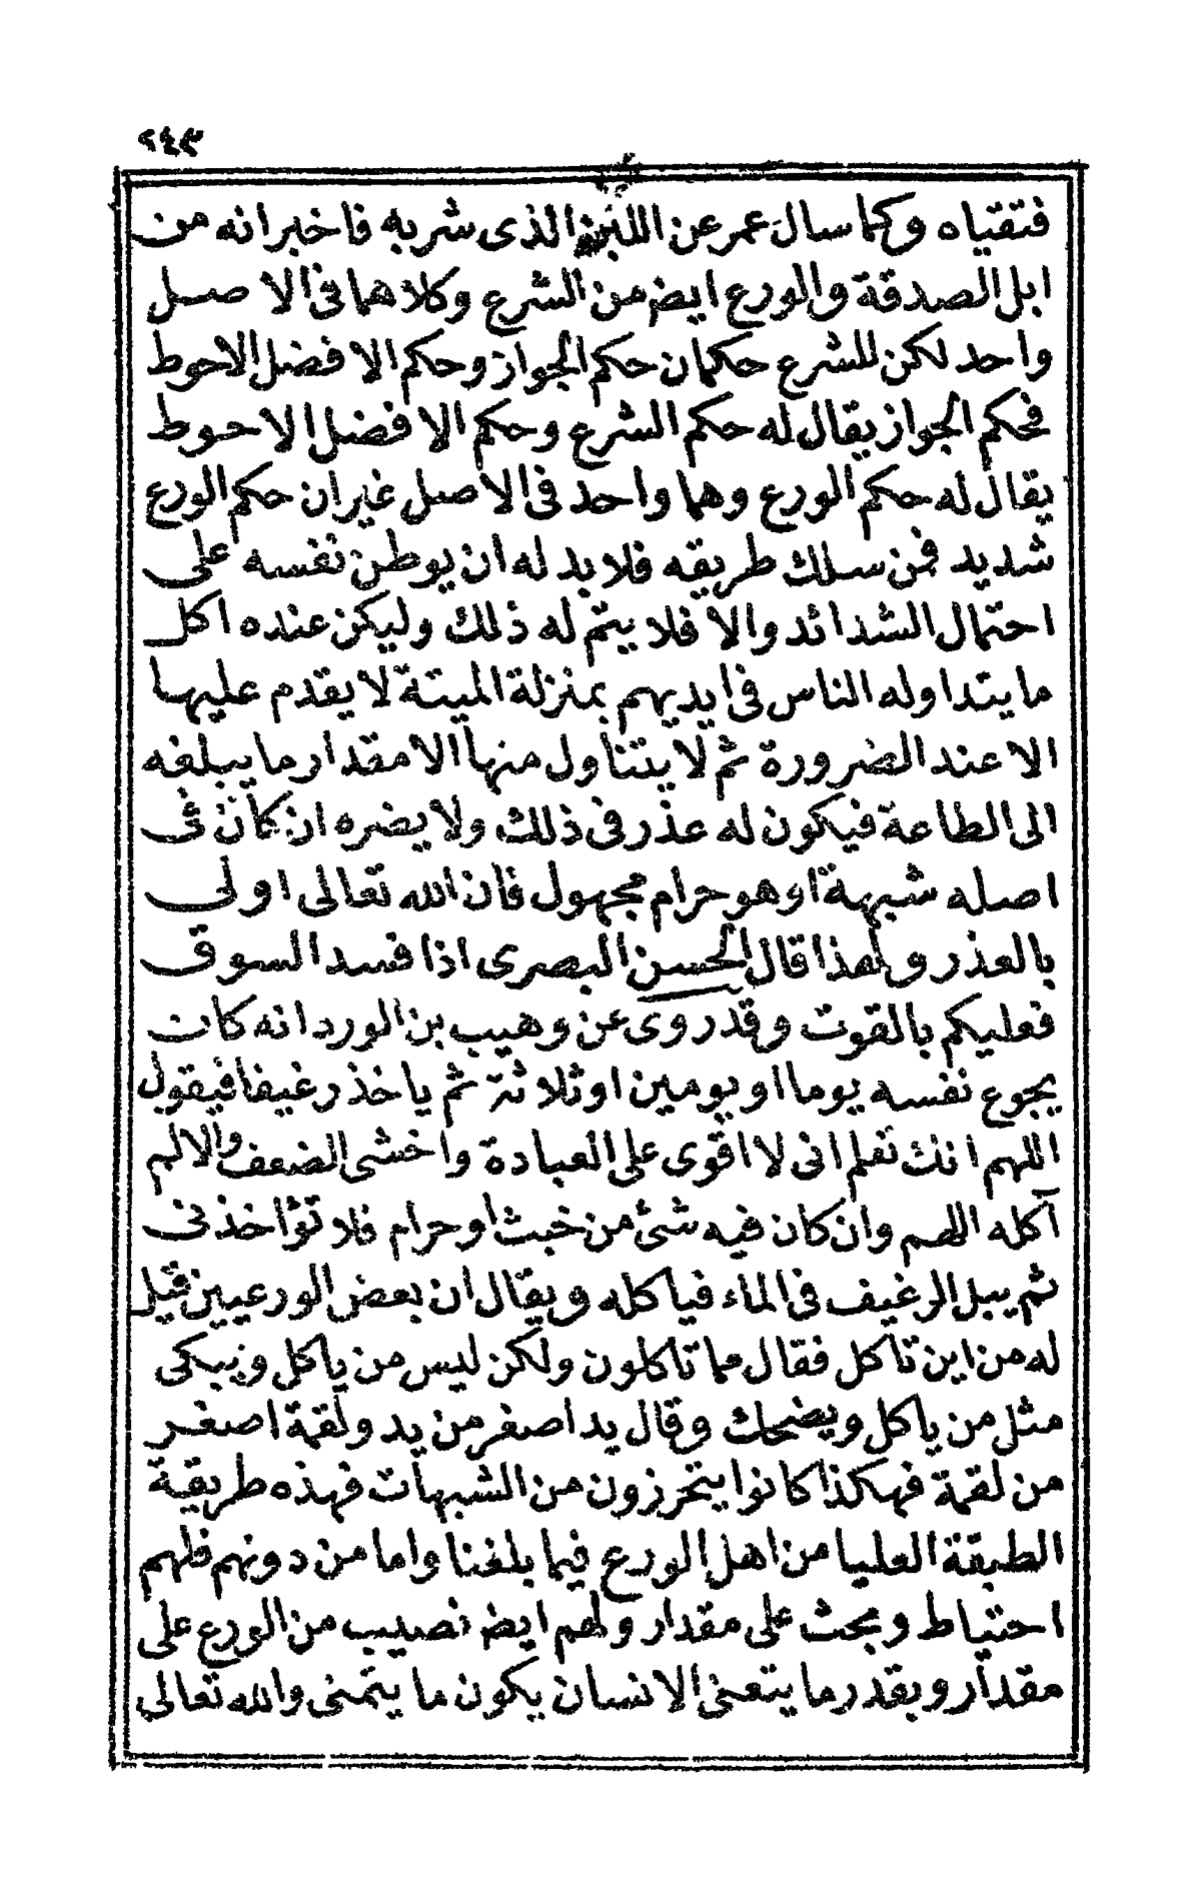 ٢٤٣
فتقياه وكما سال عمر عن اللبن الذى شربه فاخبر انه من
ابل الصدقة والورع ايض من الشرع وكلاهما فى الا صل
واحد لكن للشرع حكمان حكم الجواز وحكم الافضل الاحوط
فحكم الجواز يقال له حكم الشرع وحكم الافضل الاحوط
يقال له حكم الورع وهما واحد فى الاصل غير ان حكم الورع
شديد فمن سلك طريقه فلا بد له ان يوطن نفسه على
احتمال الشدائد والا فلا يتم له ذلك وليكن عنده اكل
ما يتداوله الناس فى ايديهم بمنزلة الميتة لا يقدم عليها
الا عند الضرورة ثم لا يتناول منها الا مقدار ما يبلغه
الى الطاعة فيكون له عذر فى ذلك ولا يضره ان كان فى
اصله شبهة او هو حرام مجهول فان الله تعالى اولى
بالعذر ولهذا قال الحسن البصرى اذا فسد السوق
فعليكم بالقوت وقد روى عن وهيب بن الورد انه كان
يجوع نفسه يوما او يومين او ثلاثة ثم ياخذ رغيفا فيقول
اللهم انك تعلم انى لا اقوى على العبادة واخشى الضعف والا لم
آكله اللهم وان كان فيه شئ من خبث او حرام فلا تؤاخذنى
ثم يبل الرغيف فى الماء فياكله ويقال ان بعض الورعيين قيل
له من اين تاكل فقال مما تاكلون ولكن ليس من ياكل ويبكى
مثل من ياكل ويضحك وقال يد اصغر من يد ولقمة اصغر
من لقمة فهكذا كانوا يتحرزون من الشبهات فهذه طريقة
الطبقة العليا من اهل الورع فيما بلغنا واما من دونهم فلهم
احتياط وبحث على مقدار ولهم ايض نصيب من الورع على
مقدار وبقدر ما يتعنى الانسان يكون ما يتمنى والله تعالى